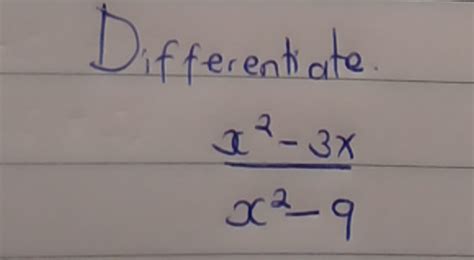 Differentiate.
x² - 3x
x² - 9